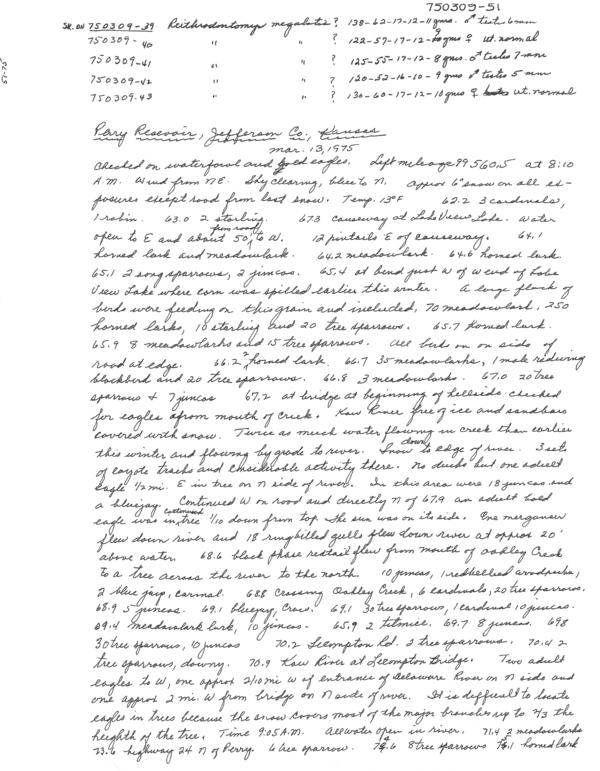 750309-51
SK. ON 750309-39 Reithrodontomys megalotis? 138-62-17-12-11gms. ♂ testes 6mm
750309-40 " " ? 122-57-17-12- gms ♀ ut. normal
750309-41 " " ? 125-55-17-12-8gms. ♂ testes 7mm
750309-42 " " ? 120-52-16-10-9gms ♂ testes 5mm
750309-43 " " ? 130-60-17-12-10gms ♀ ut. normal
51-75
Perry Resevoir, Jefferson Co., Kansas
Mar. 13, 1975
Checked on waterfowl and bald eagles. Left mileage 99,560.5 at 8:10
A.M. Wind from NE. Sky clearing, blue to N. approx 6" snow on all ex-
posures except road from last snow. Temp. 13°F 62.2 3 cardinals,
1 robin. 63.0 2 starling. 67.3 causeway at Lake View Lake. Water
open to E and about 50' from road to W. 12 pintails E of causeway. 64.1
horned lark and meadowlark. 64.2 meadowlark. 64.6 horned lark
65.1 2 song sparrows, 2 juncos. 65.4 at bend just W of W end of Lake
View Lake where corn was spilled earlier this winter. A large flock of
birds were feeding on this grain and included, 70 meadowlark, 250
horned larks, 10 starling and 20 tree sparrows. 65.7 horned lark.
65.9 8 meadowlarks and 15 tree sparrows. All bird on on sides of
road at edge. 66.2 2 horned lark. 66.7 35 meadowlarks, 1 male redwing
blackbird and 20 tree sparrows. 66.8 3 meadowlarks. 67.0 20 tree
sparrows + 7 juncos 67.2 at bridge at beginning of hillside checked
for eagles from mouth of creek. Kaw River free of ice and sandbars
covered with snow. Twice as much water flowing in creek than earlier
this winter and flowing by grade to river. Snow down to edge of river. 3 sets
of coyote tracks and considerable activity there. No ducks but one adult
eagle 1/2 mi. E in tree on N side of river. In this area were 18 juncos and
a bluejay. Continued W on road and directly N of 67.9 an adult bald
eagle was in cottonwood tree 1/10 down from top. The sun was on its side. One merganser
flew down river and 18 ringbilled gulls flew down river at approx 20'
above water. 68.6 black phase redtail flew from mouth of Oakley Creek
to a tree across the river to the north. 10 juncos, 1 redbellied woodpecker,
2 blue jays, carinal. 68.8 crossing Oakley Creek, 6 cardinals, 20 tree sparrows.
68.9 5 juncos. 69.1 bluejay, Crow. 69.1 30 tree sparrows, 1 cardinal 10 juncos.
69.4 meadowlark lark, 10 juncos. 65.9 2 titmice. 69.7 8 juncos. 69.8
30 tree sparrows, 10 juncos 70.2 Lecompton Rd. 2 tree sparrows. 70.4 2
tree sparrows, downy. 70.9 Kaw River at Lecompton Bridge. Two adult
eagles to W, one approx 2/10 mi W of entrance of Delaware River on N side and
one approx 2 mi. W from bridge on N side of river. It is difficult to locate
eagles in trees because the snow covers most of the major branches up to 2/3 the
heighth of the tree. Time 9:05 A.M. All water open in river. 71.4 2 meadowlarks
73.6 highway 24 N of Perry. 6 tree sparrow. 8 tree sparrows horned lark